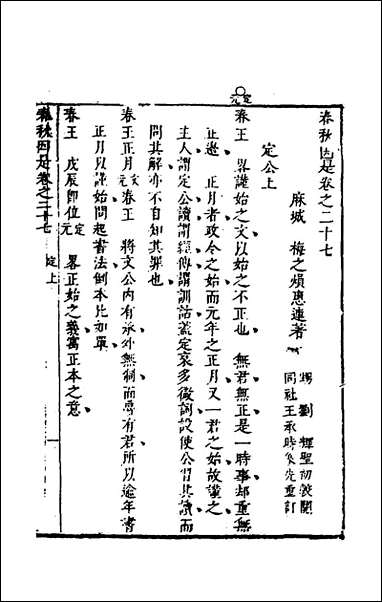 春秋因是卷之二十七
麻城 梅之熉惠連著
楊 劉 輝聖初義閱
同社王承時乘先重訂
定公上
定元
春王 畧謹始之文以始之不正也 無君無正是一時事却重無
正邊 正月者政令之始而元年之正月又一君之始故謹之
主人謂定公讀謂經傳謂訓詁蓋定哀多微詞設使公習其讀而
問其解亦不自知其罪也
春王正月文元春王 將文公內有承外無制而尋有君所以逾年書
正月以謹始問起書法倒本比如單
春王 戊辰即位定元 畧正始之義寓正本之意
春秋因是卷之二十七 定上